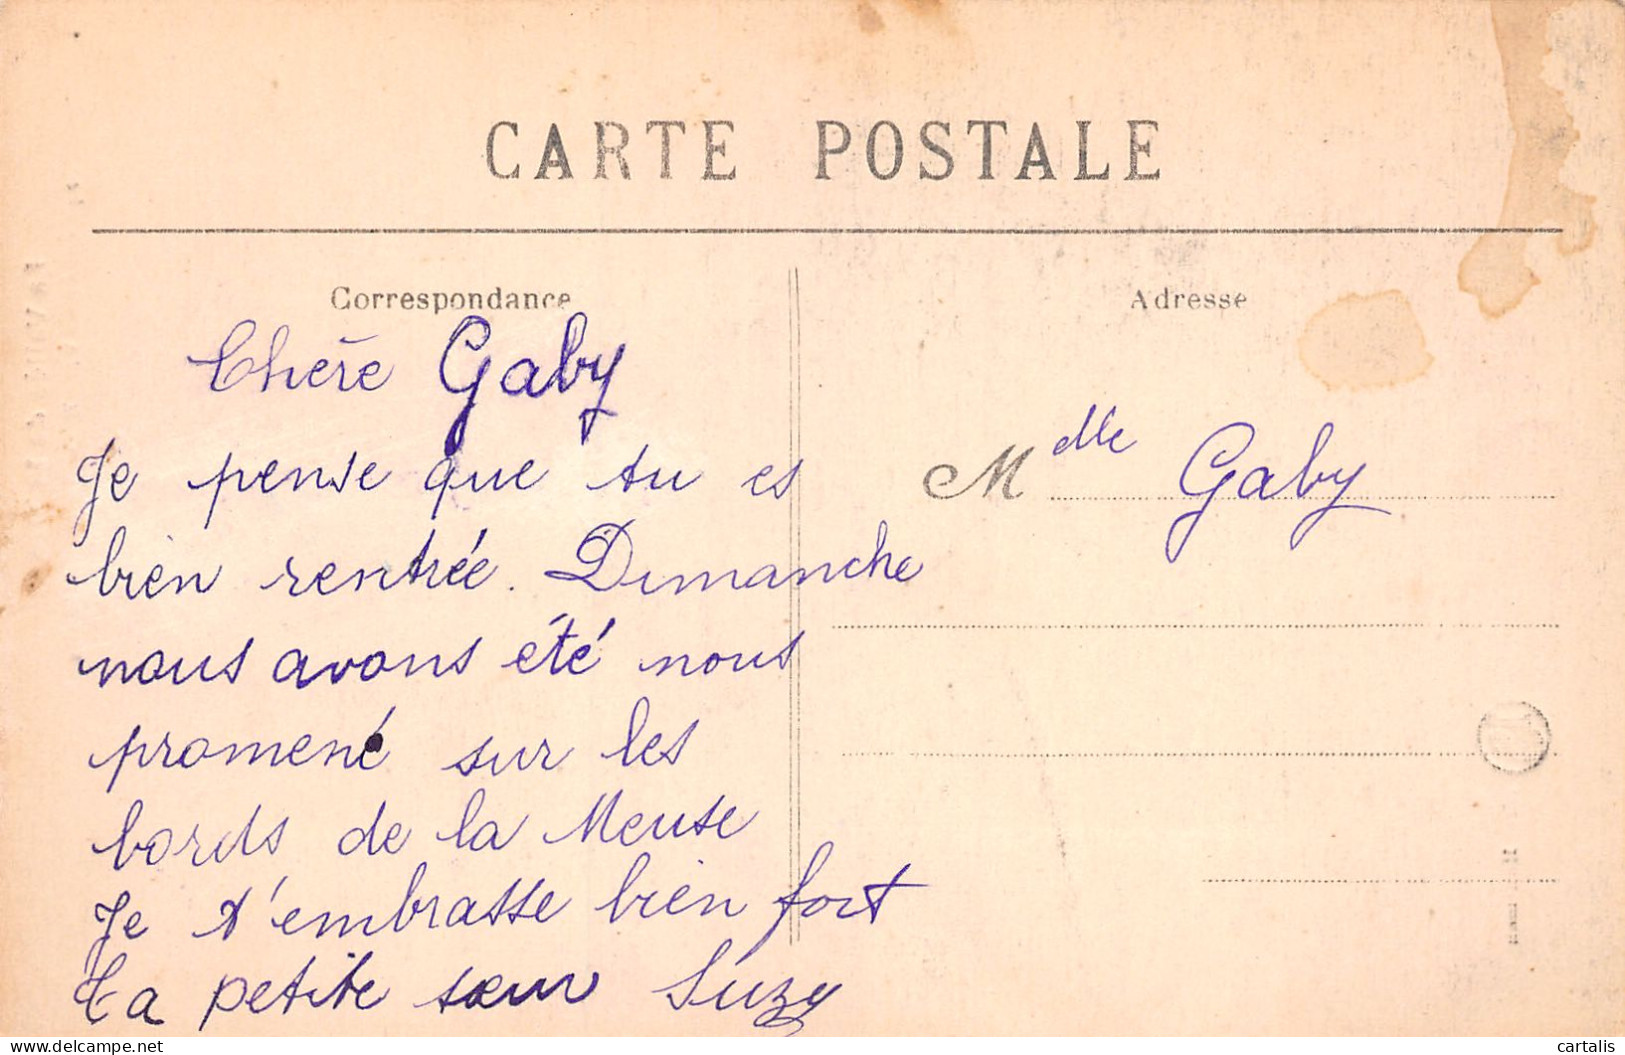 CARTE POSTALE
Correspondance
Adresse
Chère Gaby
Je pense que tu es
bien rentrée. Dimanche
nous avons été nous
promené sur les
bords de la Meuse
Je t'embrasse bien fort
Ta petite sœur Suzy
Mdlle Gaby
delcampe.net
cartalis